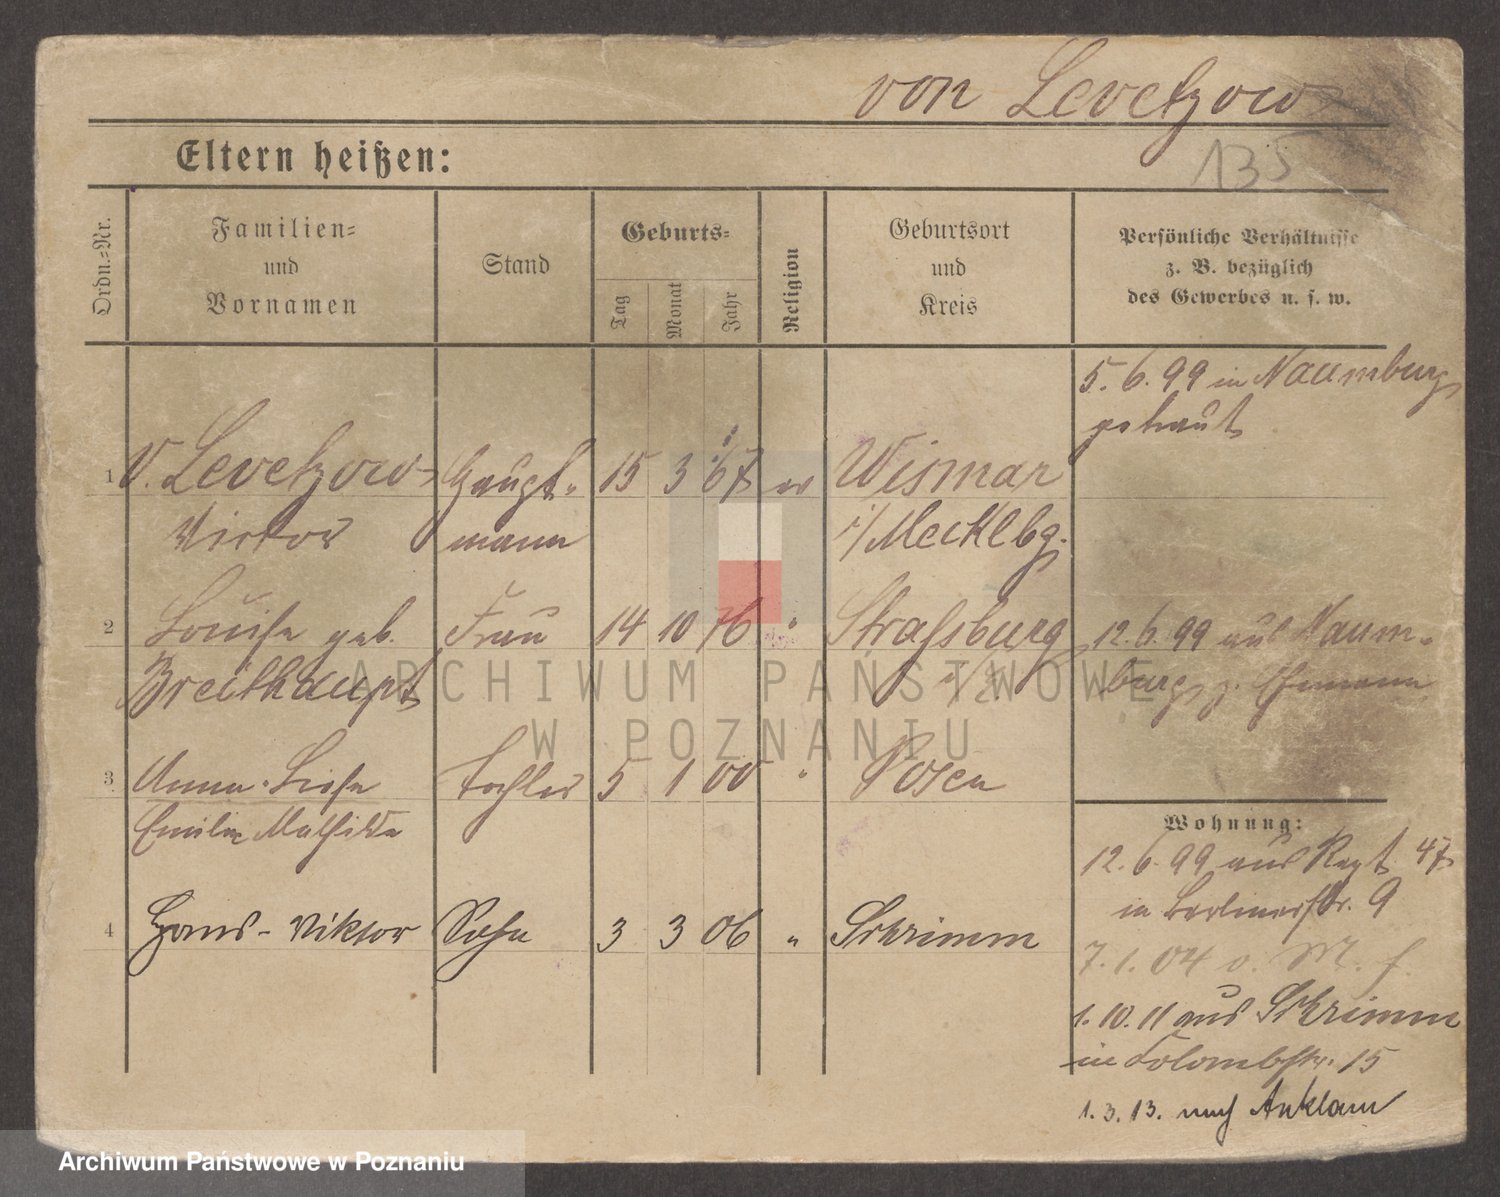 von Levetzow
135
Eltern heißen:
Ordn.-Nr.
Familien-
und
Vornamen
Stand
Geburts-
Tag
Monat
Jahr
Religion
Geburtsort
und
Kreis
Persönliche Verhältnisse
z. B. bezüglich
des Gewerbes u. s. w.
5. 6. 99 in Naumburg
getraut
1 v. Levetzow Haupt- 15 3 67 ev Wismar
Victor mann i/Mecklbg.
2 Louise geb. Frau 14 10 76 " Strassburg
Breithaupt i/E
12. 6. 99 aus Naum-
burg z. Ehemann
3 Anna-Liese Tochter 5 1 00 " Posen
Emilie Mathilde
4 Hans-Viktor Sohn 3 3 06 " Schrimm
Wohnung:
12. 6. 99 aus Regt 47
in Berlinerstr. 9
7. 1. 04 v. M. f.
1. 10. 11 aus Schrimm
in Colombstr. 15
1. 3. 13. nach Anklam
ARCHIWUM PAŃSTWOWE
W POZNANIU
Archiwum Państwowe w Poznaniu